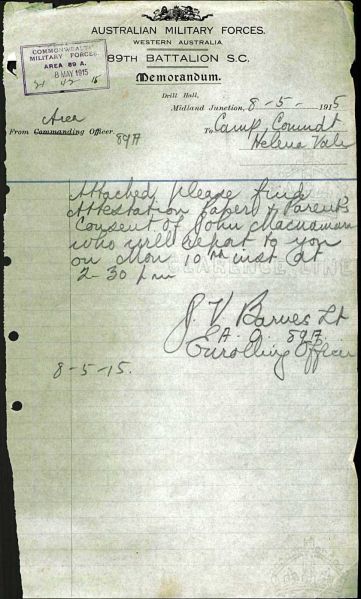 AUSTRALIAN MILITARY FORCES.
WESTERN AUSTRALIA
89TH BATTALION S.C.
Memorandum.
COMMONWEALTH
MILITARY FORCES
AREA 89 A.
8 MAY 1915
Drill Hall,
Midland Junction, 8-5-1915
Area
From Commanding Officer. 89A
To Camp, Commdt
Helena Vale
Attached please find
Attestation papers & Parents
Consent of John Macnamara
who will report to you
on Mon 10th inst at
2-30 pm
J V Barnes Lt
A. O. 89A.
Enrolling Officer
8-5-15.